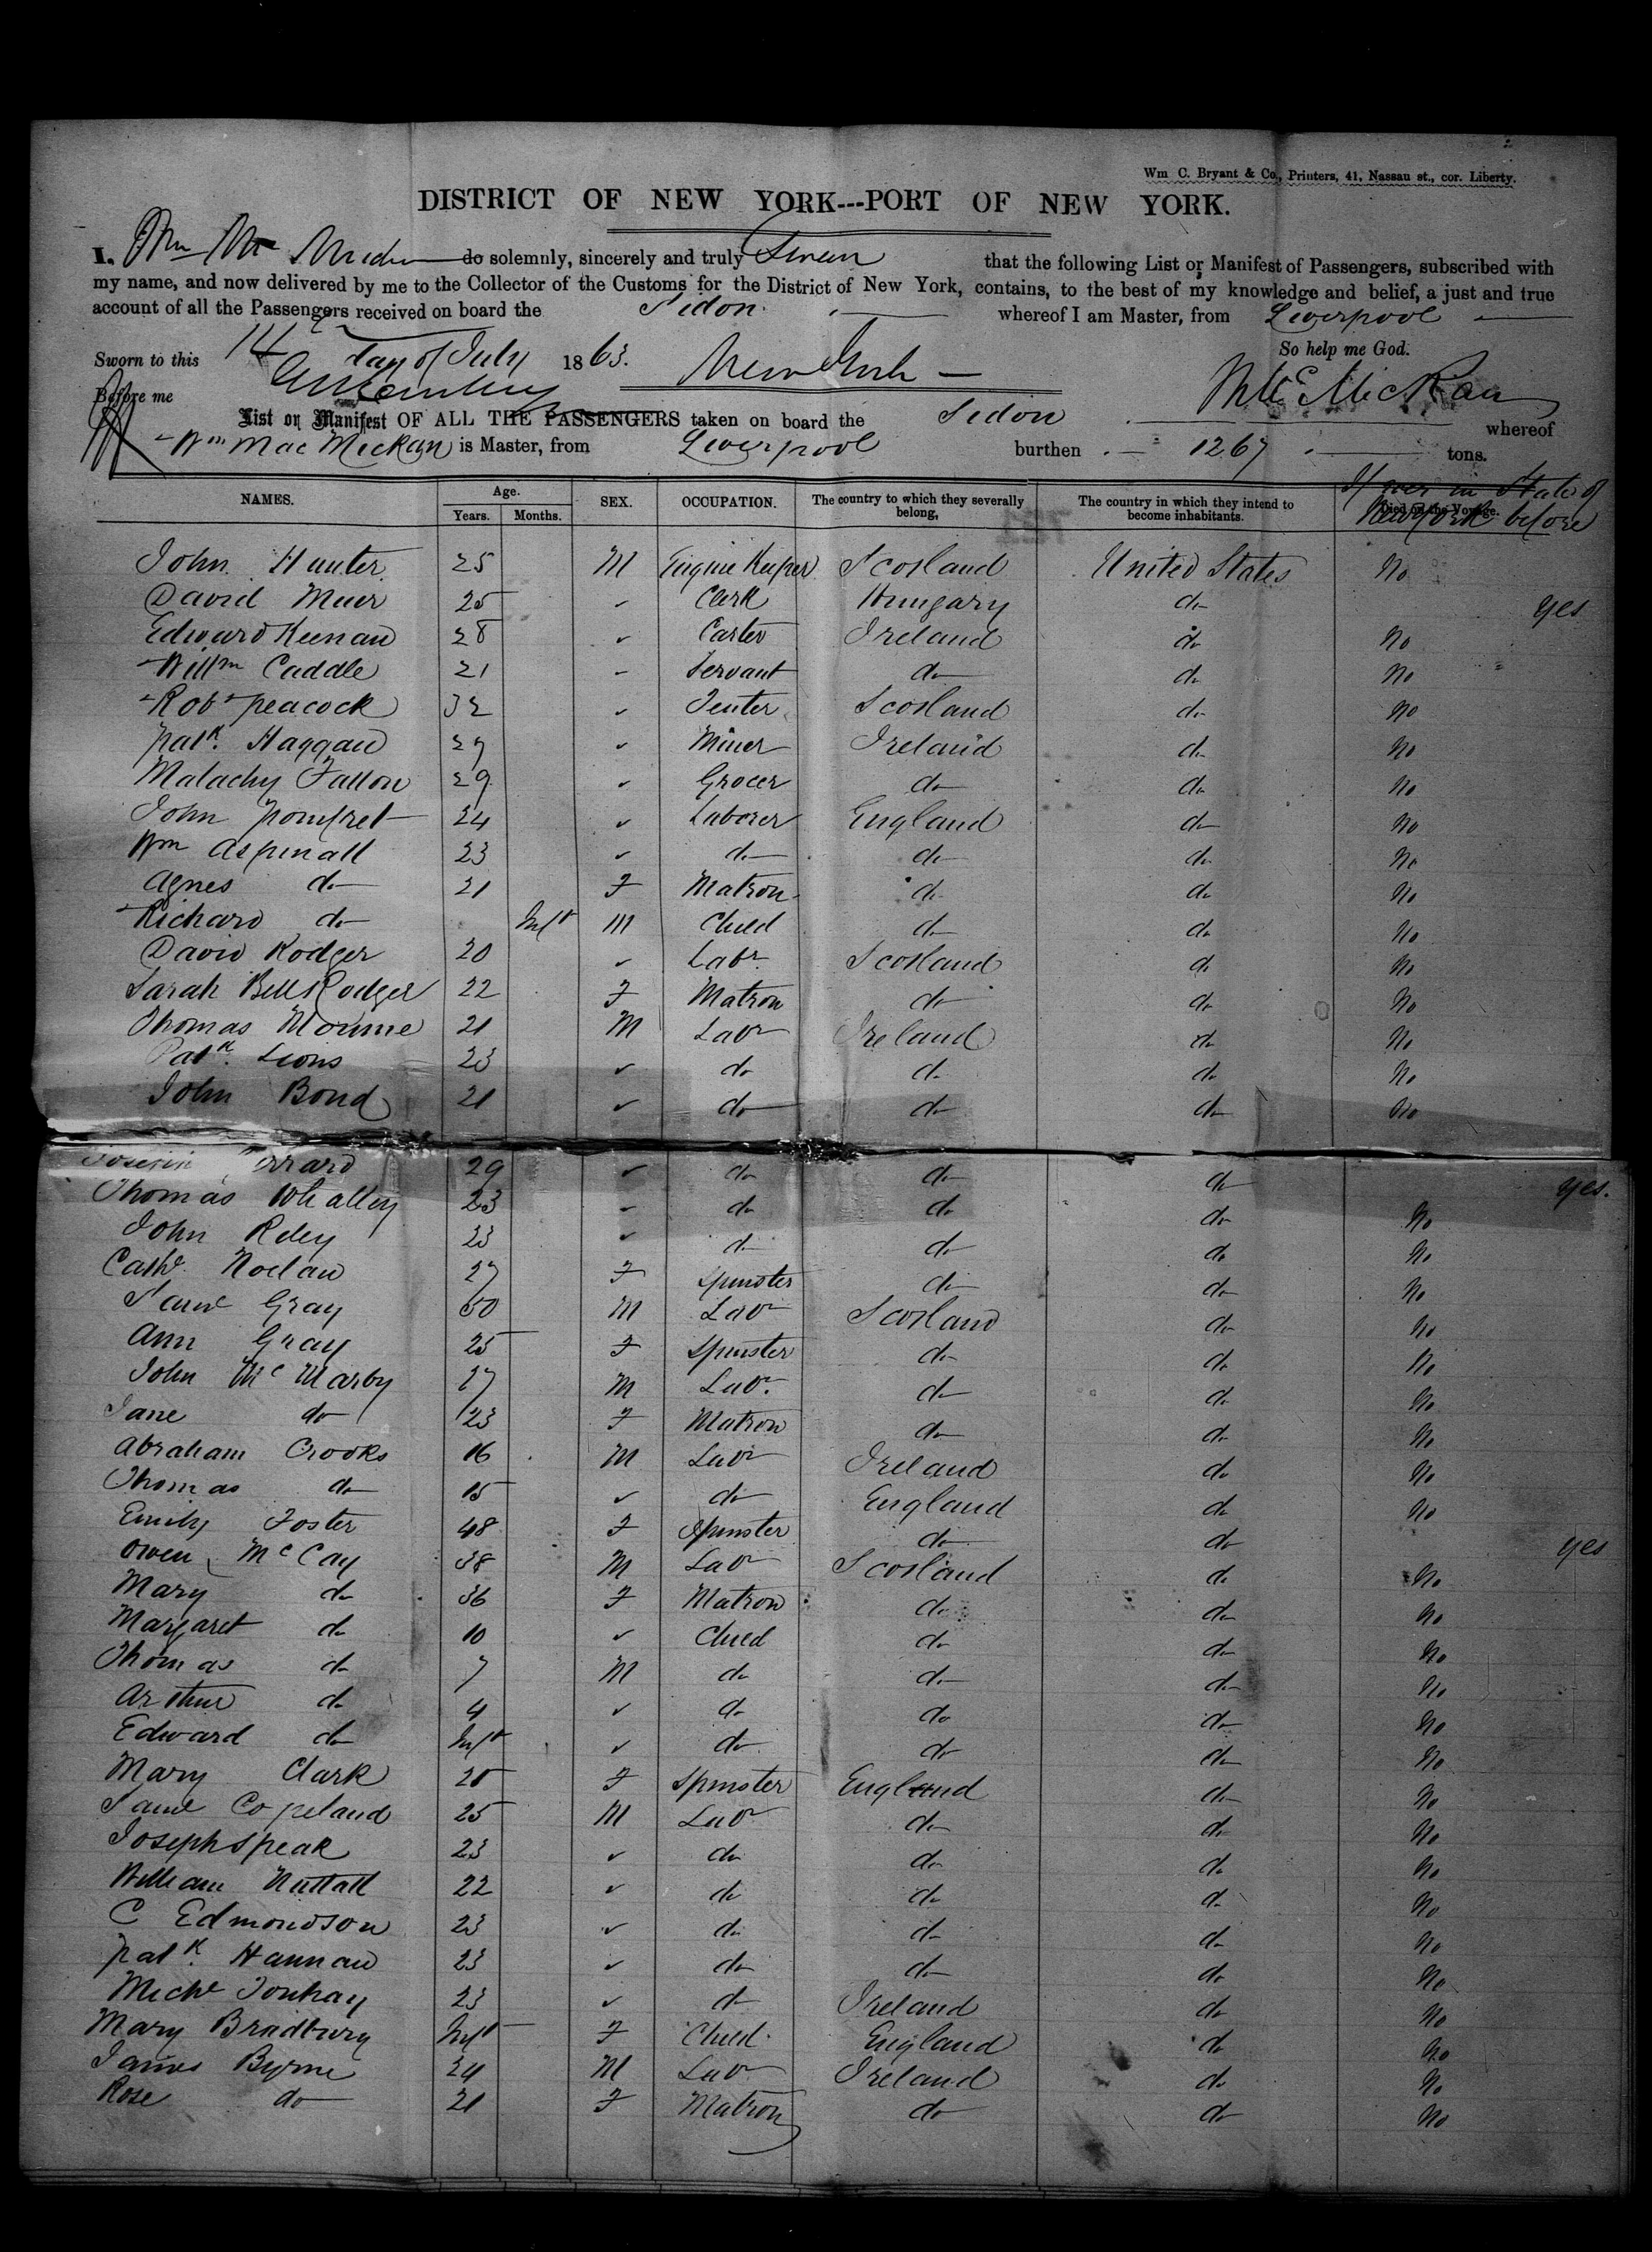 Wm C. Bryant & Co., Printers, 41, Nassau st., cor. Liberty.
DISTRICT OF NEW YORK---PORT OF NEW YORK.
I, Wm Mc do solemnly, sincerely and truly Swear that the following List or Manifest of Passengers, subscribed with
my name, and now delivered by me to the Collector of the Customs for the District of New York, contains, to the best of my knowledge and belief, a just and true
account of all the Passengers received on board the Sidon whereof I am Master, from Liverpool
So help me God.
Sworn to this 14 day of July 1863. New York
Before me
Wm Mc MicKan
List or Manifest OF ALL THE PASSENGERS taken on board the Sidon whereof
Wm Mac Mickan is Master, from Liverpool burthen 1267 tons.
NAMES. Age. Years. Months. SEX. OCCUPATION. The country to which they severally belong, The country in which they intend to become inhabitants. Died on the Voyage. If ever in State of New York before
John Hunter 25 M Engine Keeper Scotland United States No
David Muir 25 " Clerk Hungary do Yes
Edward Keenan 28 " Carter Ireland do No
Willm Caddle 21 " Servant do do No
Robt Peacock 32 " Tenter Scotland do No
Patk. Haggan 27 " Miner Ireland do No
Malachy Fallon 29 " Grocer do do No
John Pomfret 24 " Laborer England do No
Wm Aspinall 23 " do do do No
Agnes do 21 F Matron do do No
Richard do Inft M Child do do No
David Rodger 20 " Labr Scotland do No
Sarah Bell Rodger 22 F Matron do do No
Thomas 21 M Labr Ireland do No
Patk. Lions 23 " do do do No
John Bond 21 " do do do No
29 " do do do Yes.
Thomas Whalley 23 " do do do No
John Riley 23 " do do do No
Cathe Noelan 27 F Spinster do do No
Saml Gray 50 M Labr Scotland do No
Ann Gray 25 F Spinster do do No
John Mc Marby 27 M Labr do do No
Jane do 23 F Matron do do No
Abraham Crooks 16 M Labr Ireland do No
Thomas do 15 " do England do No
Emily Foster 48 F Spinster do do Yes
Owen McCay 38 M Labr Scotland do No
Mary do 36 F Matron do do No
Margaret do 10 " Child do do No
Thomas do 7 M do do do No
Arthur do 4 " do do do No
Edward do Inft " do do do No
Mary Clark 20 F Spinster England do No
Saml Copeland 25 M Labr do do No
Joseph Speak 23 " do do do No
William Nuttall 22 " do do do No
C Edmondson 23 " do do do No
Patk. Hannan 23 " do do do No
Michl 23 " do Ireland do No
Mary Bradbury Inft F Child England do No
James Byrne 24 M Labr Ireland do No
Rose do 21 F Matron do do No